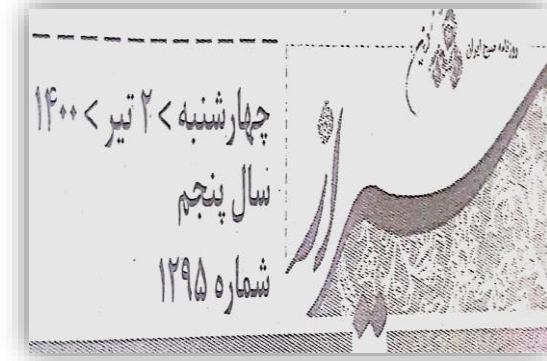 روزنامه صبح ایران
چهارشنبه > ۲ تیر > ۱۴۰۰
سال پنجم
شماره ۱۲۹۵